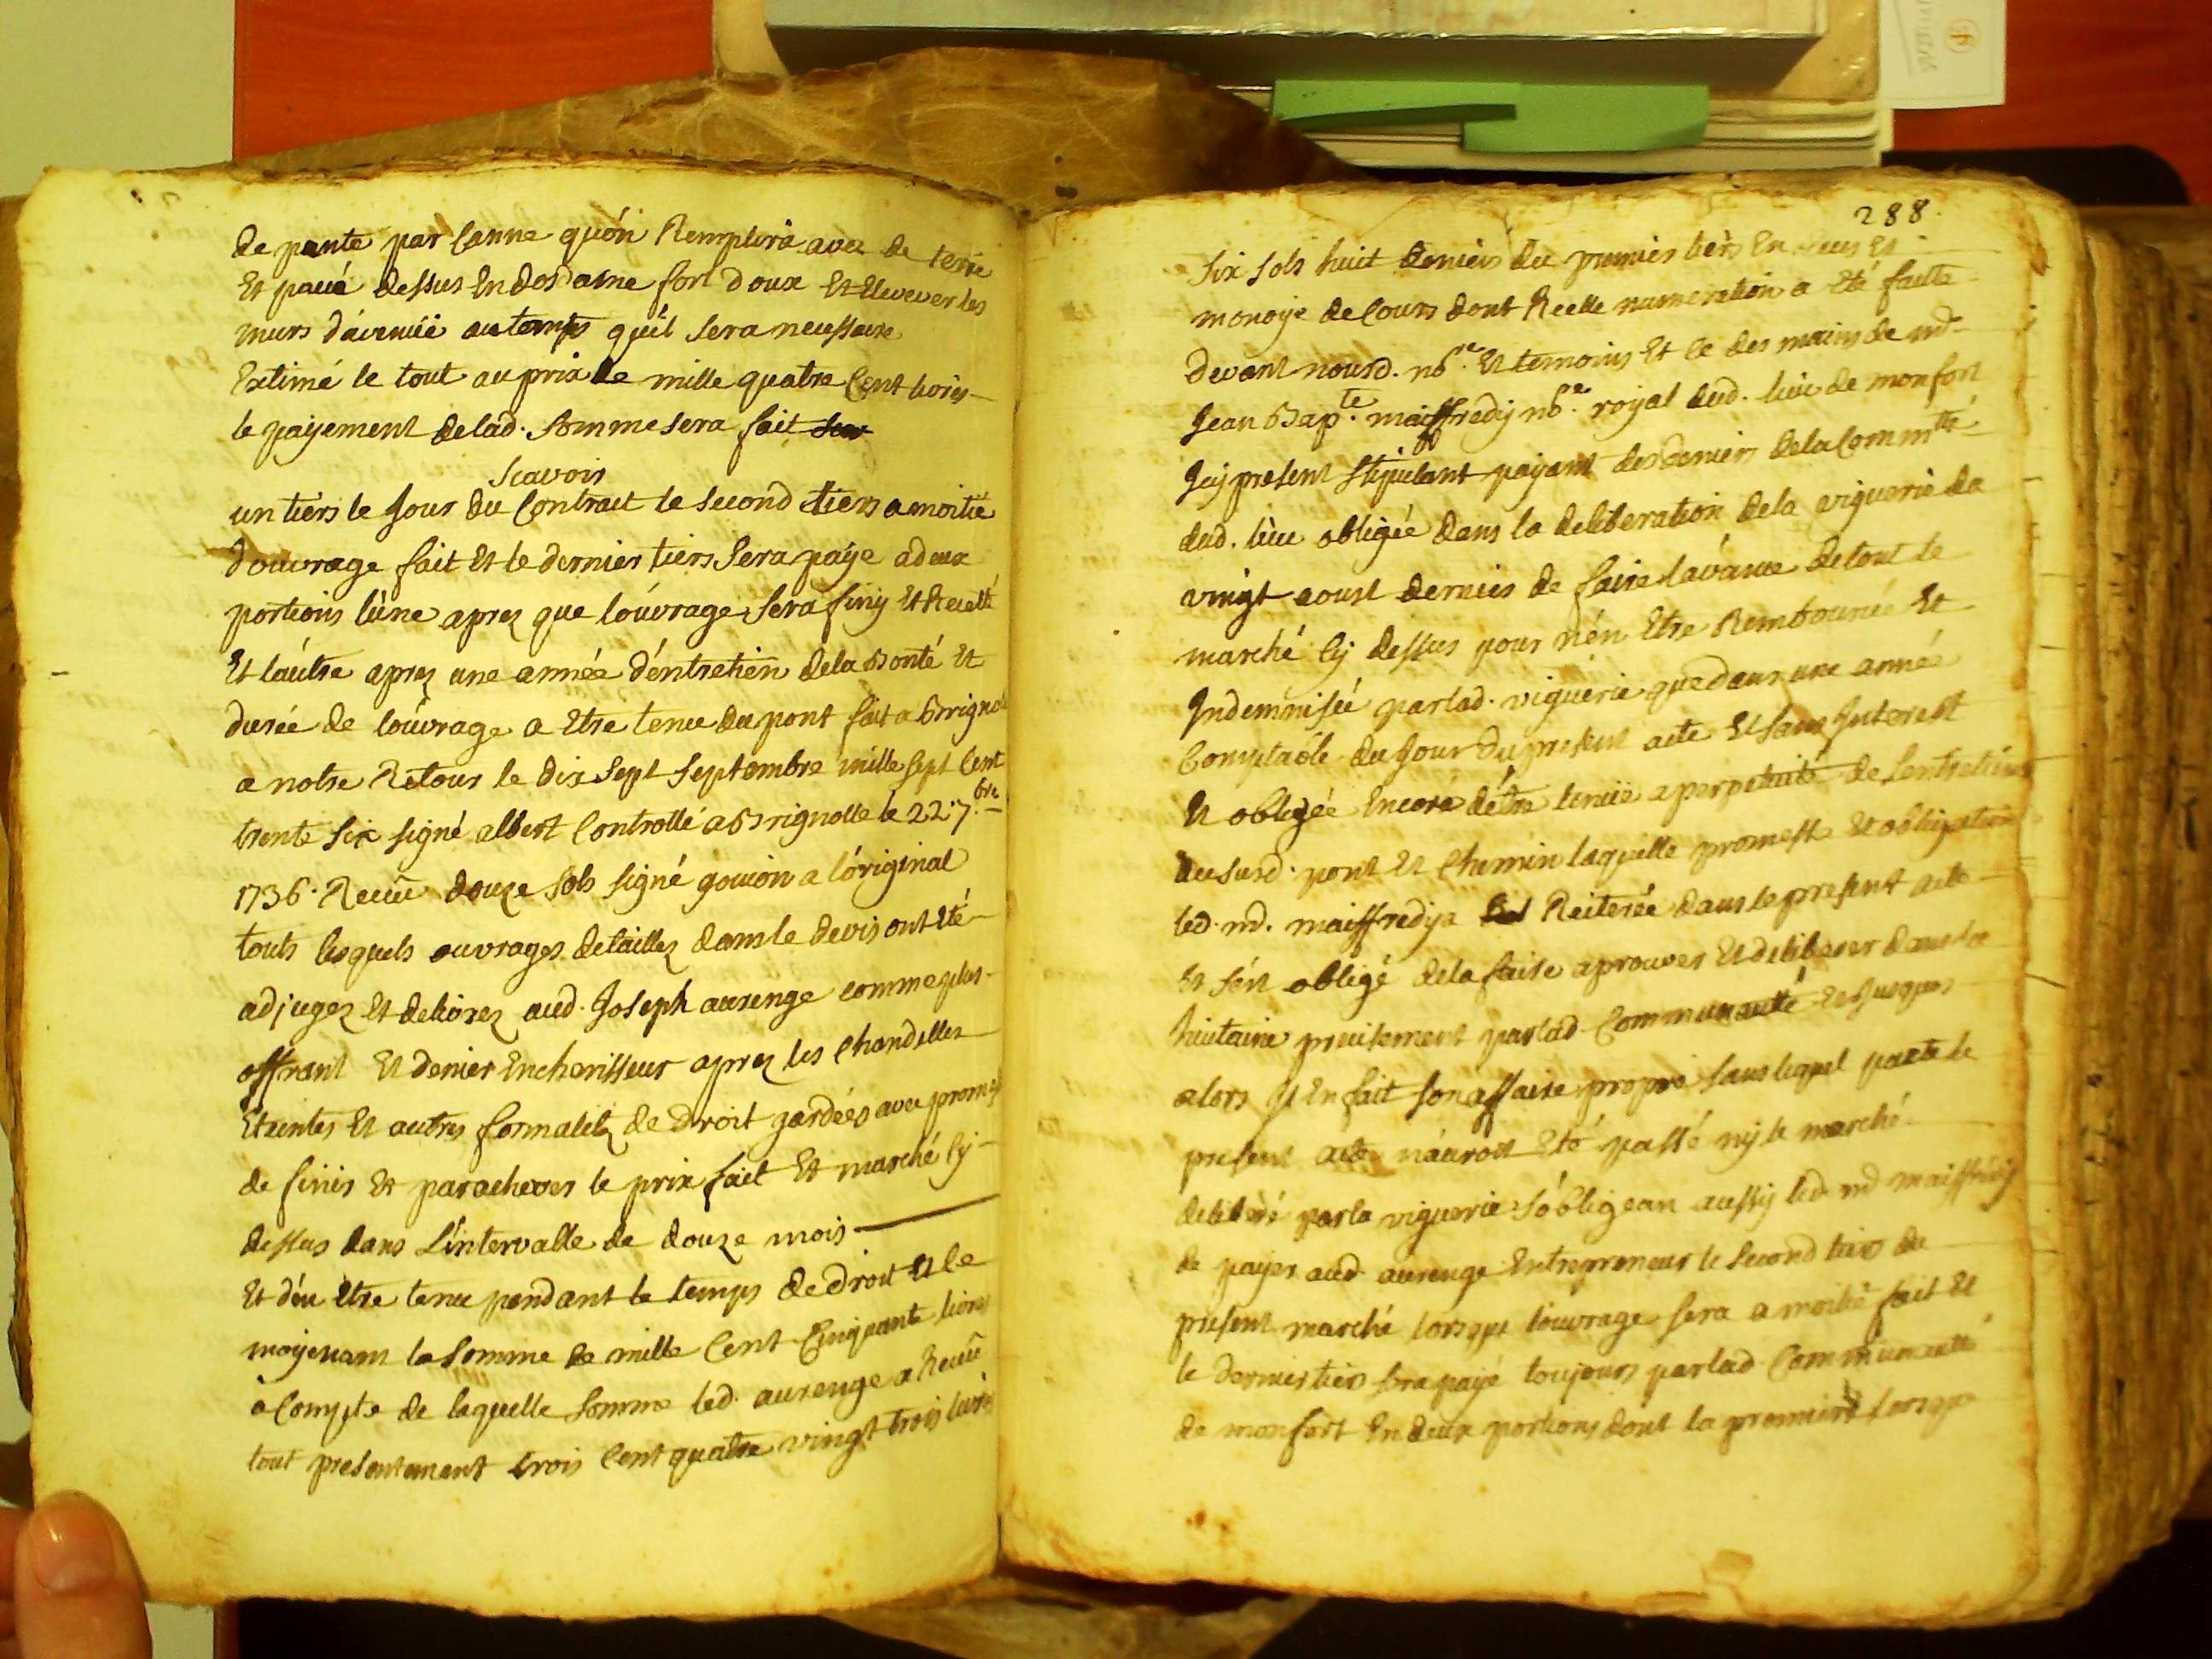 de pante par Canne quón Remplira avec de terre
Et pavé dessus En dosdasne fort doux Et Elever les
murs d'avenüe au temps quil sera necessaire
Extimé le tout au prix de mille quatre Cent livres
le payement de lad. somme sera fait
scavoir
un tiers le Jour du Contract le second tiers a moitié
d'ouvrage fait Et le dernier tiers sera paÿe a deux
portions lúne aprez que lóuvrage sera finy Et Recetté
Et láutre aprez une année déntretien de la bonté Et
durée de lóuvrage a Etre tenu du pont fait a Brignol
a notre Retour le dix sept septembre mille sept Cent
trente six signé albert Controllé a Brignolle le 22 7.bre
1736. Receu douze sols signé gouion a lóriginal
touts lesquels ouvrages detaillez dans le devis ont Eté
adjugez Et delivrez aud. Joseph aurenge comme plus
offrant Et denier Encherisseur aprez les Chandelles
Eteintes Et autres formalitz de droit gardées avec promesse
de finir Et parachever le prix fait Et marché Cy
dessus dans L'intervalle de douze mois
Et d'en Etre tenu pendant le temps de droit Et le
moyenant la somme de mille Cent Cinquante livres
a Compte de laquelle somme led. aurenge a Receu
tout presentement trois Cent quatre vingt trois livres
288.
six sols huit deniers du premier tiers En Ecus Et
monoye de Cours dont Reelle numeration a Eté faitte
devant nousd. nore. Et temoins Et ce des mains de md
Jean Bapte. maiffredy nore. royal dud. lieu de monfort
Icy present stipulant payant des deniers de la Commté
dud. lieu obligée dans la deliberation de la viguerie du
vingt aoust dernier de faire lávance de tout le
marché Cy dessus pour nén Etre Remboursée Et
Indemnisée par lad. viguerie que dans une année
Comptable du Jour du present acte Et sans Interest
Et obligée Encore détre tenüe a perpetuité de lentretien
du susd. pont Et Chemin laquelle promesse Et obligation
led. md. maiffredy a Reiterée dans le present acte
Et sén obligé de la faire aprouver Et deliberer dans la
huitaine precisement par lad. Communauté Et Jusques
alors Il En fait son affaire propre sans lequel pacte le
present acte náuroit Eté passé ny le marché
deliberé par la viguerie sóbligeant aussy led. md maiffredy
de payer aud. aurenge Entrepreneur le second tiers du
present marché lorsque lóuvrage sera a moitié fait Et
le dernier tiers sera payé toujours par lad. Communauté
de monfort En deux portions dont la premiere lorsque